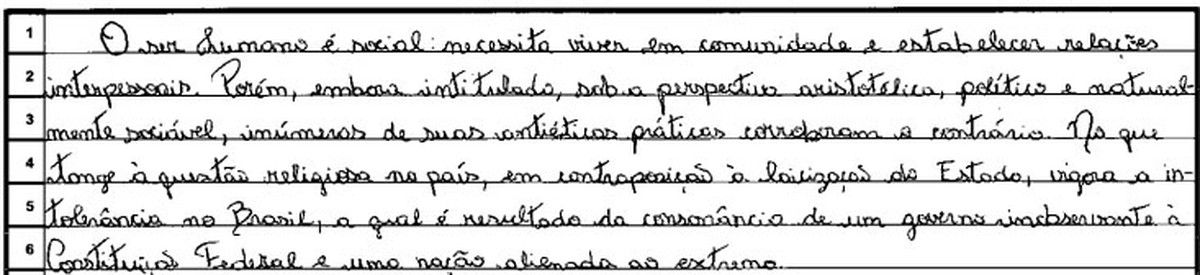 1 O ser humano é social: necessita viver em comunidade e estabelecer relações
2 interpessoais. Porém, embora intitulado, sob a perspectiva aristotélica, político e natural-
3 mente sociável, inúmeras de suas antiéticas práticas corroboram o contrário. No que
4 tange à questão religiosa no país, em contraposição à laicização do Estado, vigora a in-
5 tolerância no Brasil, a qual é resultado da consonância de um governo inobservante à
6 Constituição Federal e uma nação alienada ao extremo.